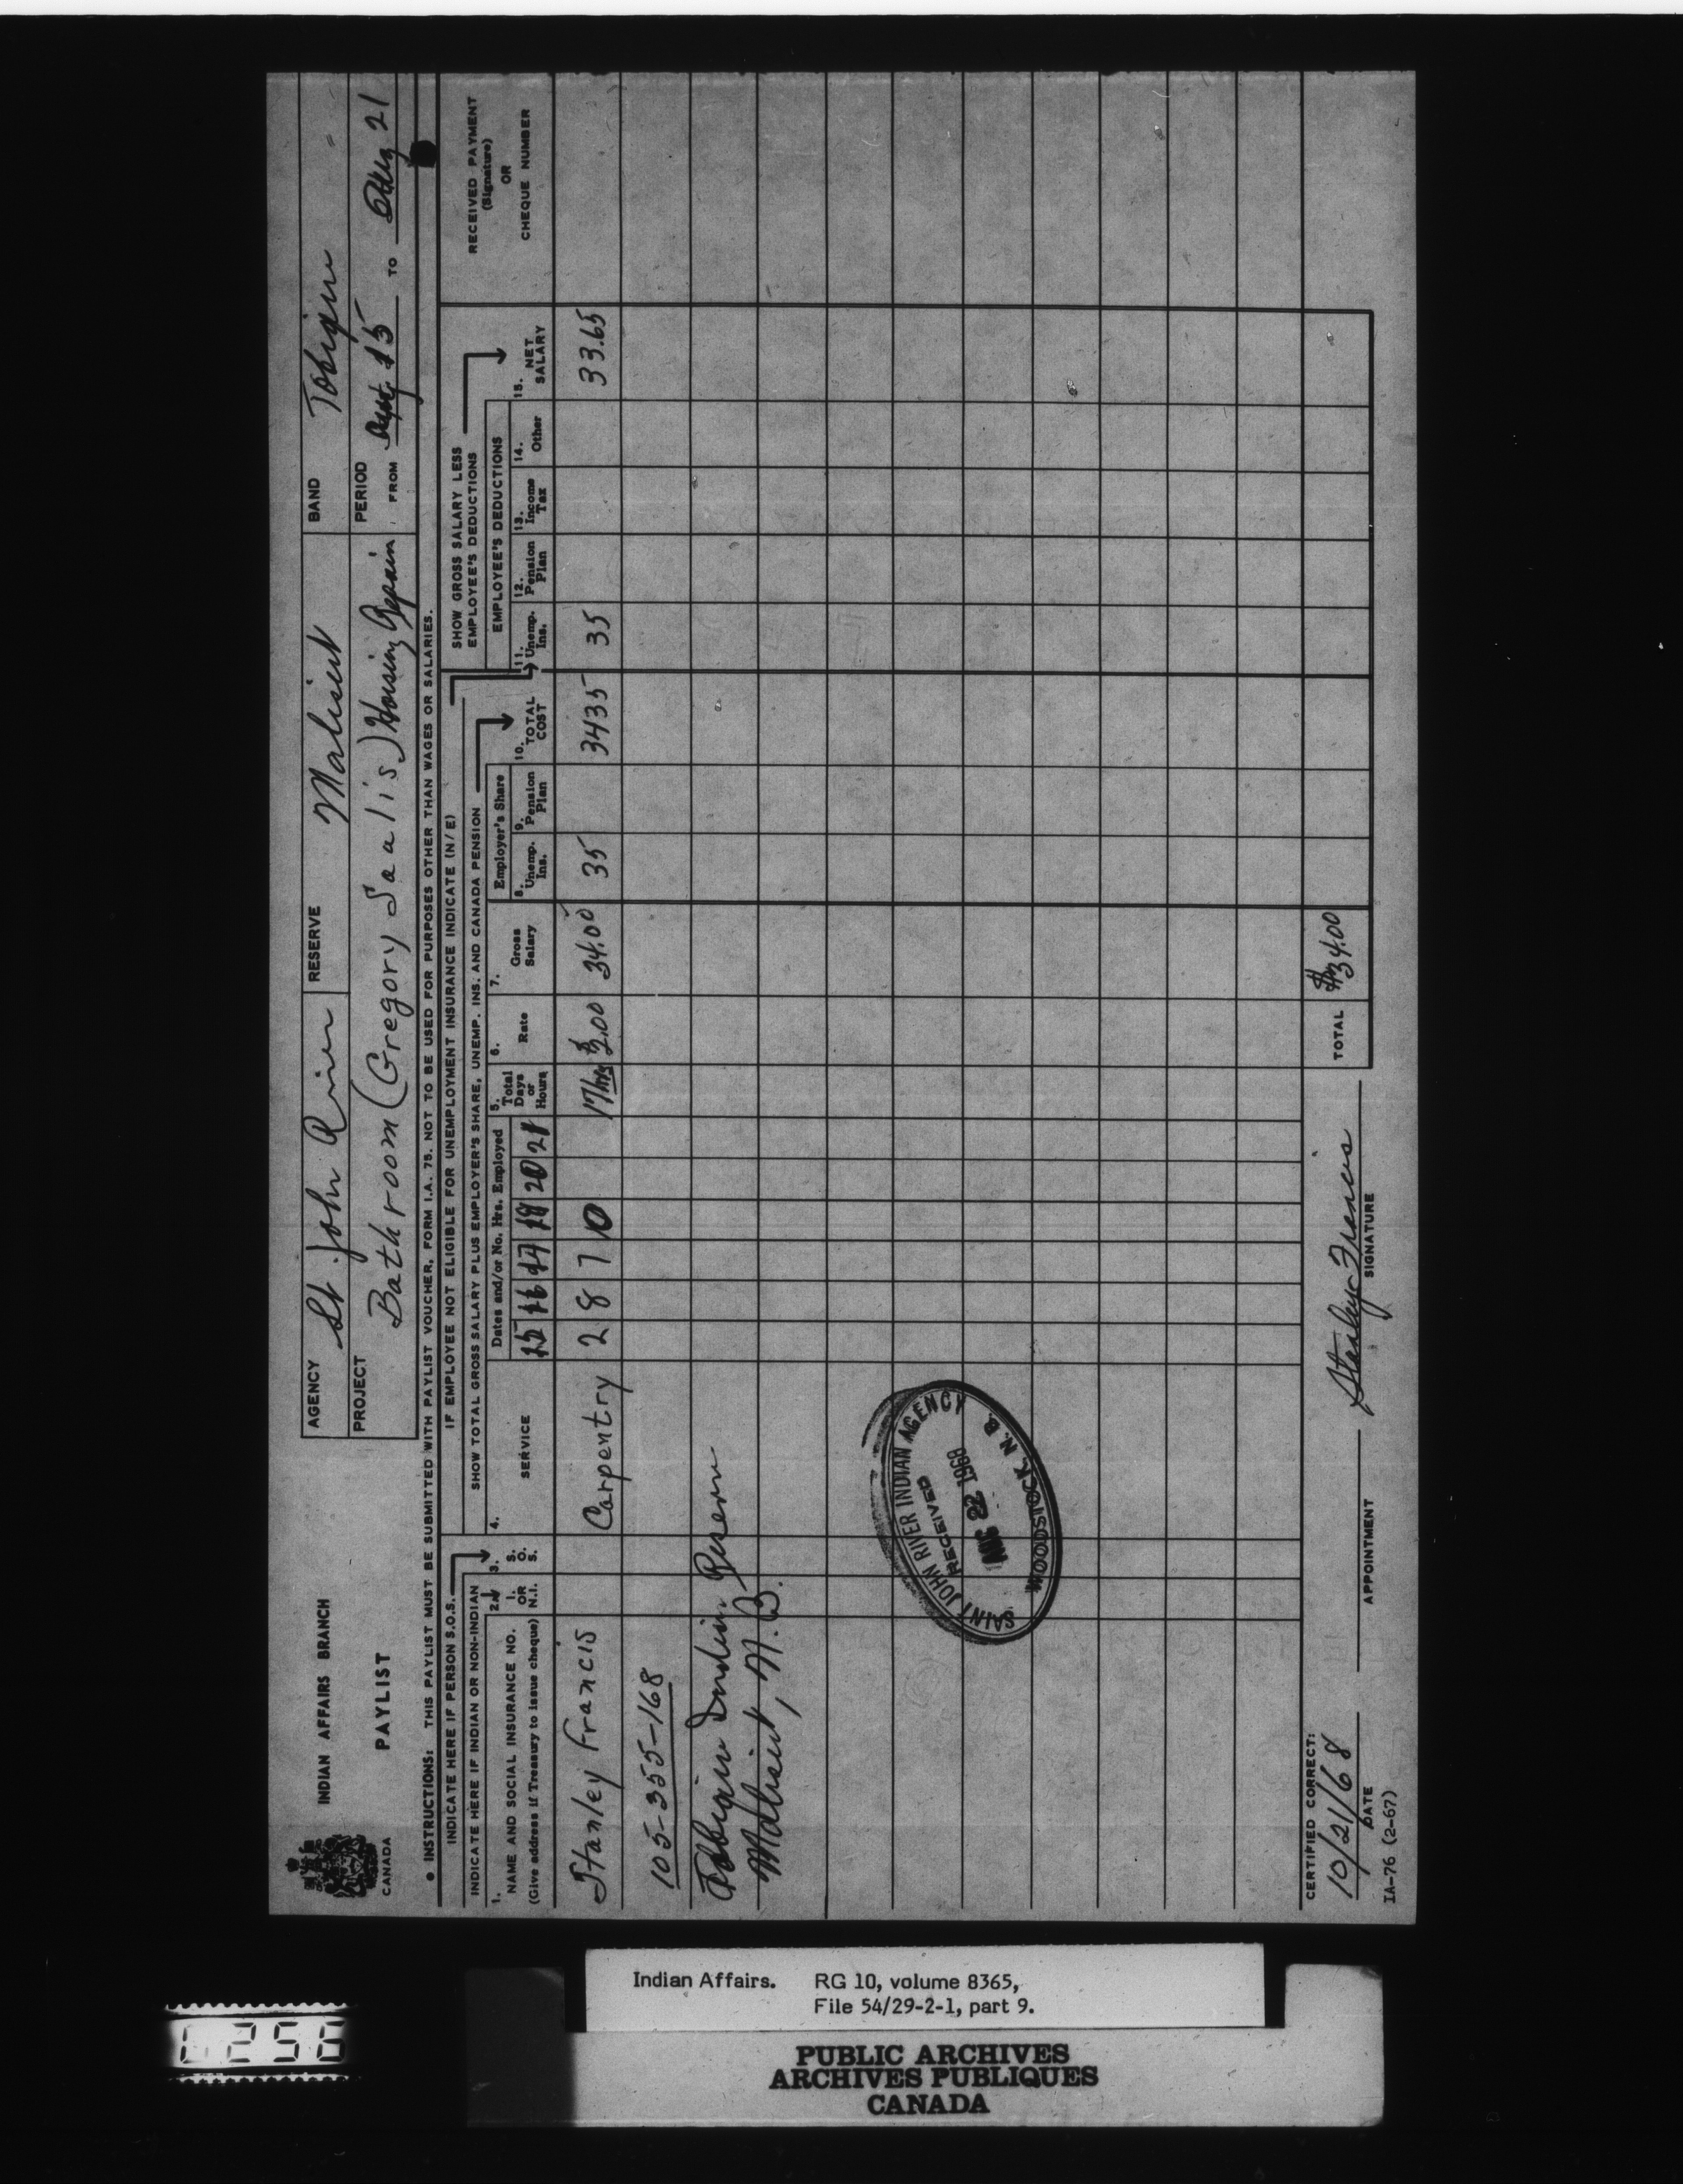 INDIAN AFFAIRS BRANCH
PAYLIST
CANADA
AGENCY St. John River RESERVE Maliseet BAND Tobique
PROJECT Bathroom (Gregory Saalis) Housing Repair PERIOD FROM 15 TO 21
• INSTRUCTIONS: THIS PAYLIST MUST BE SUBMITTED WITH PAYLIST VOUCHER, FORM I.A. 75. NOT TO BE USED FOR PURPOSES OTHER THAN WAGES OR SALARIES.
INDICATE HERE IF PERSON S.O.S. IF EMPLOYEE NOT ELIGIBLE FOR UNEMPLOYMENT INSURANCE INDICATE (N/E) SHOW GROSS SALARY LESS EMPLOYEE'S DEDUCTIONS
INDICATE HERE IF INDIAN OR NON-INDIAN SHOW TOTAL GROSS SALARY PLUS EMPLOYER'S SHARE, UNEMP. INS. AND CANADA PENSION
1. NAME AND SOCIAL INSURANCE NO. (Give address if Treasury to issue cheque)
2. I. OR N.I.
3. S. O. S.
4. SERVICE
Dates and/or No. Hrs. Employed
15 16 17 18 20 21
5. Total Days or Hours
6. Rate
7. Gross Salary
Employer's Share
8. Unemp. Ins.
9. Pension Plan
10. TOTAL COST
EMPLOYEE'S DEDUCTIONS
11. Unemp. Ins.
12. Pension Plan
13. Income Tax
14. Other
15. NET SALARY
RECEIVED PAYMENT (Signature) OR CHEQUE NUMBER
Stanley Francis Carpentry 2 8 7 0 17 hrs $2.00 34.00 35 3435 35 33.65
105-355-168
Tobique Indian Reserve
Maliseet, N.B.
SAINT JOHN RIVER INDIAN AGENCY
RECEIVED
AUG 22 1968
WOODSTOCK, N. B.
TOTAL $34.00
CERTIFIED CORRECT:
10/21/68 Stanley Francis
DATE APPOINTMENT SIGNATURE
IA-76 (2-67)
Indian Affairs. RG 10, volume 8365,
File 54/29-2-1, part 9.
PUBLIC ARCHIVES
ARCHIVES PUBLIQUES
CANADA